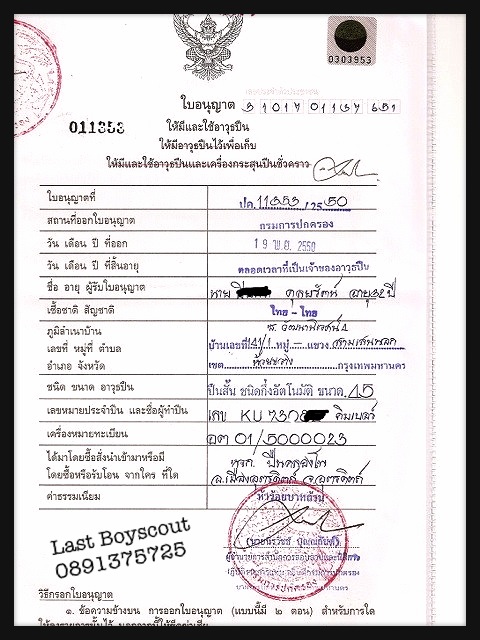 0303953
ใบอนุญาต
011353
ให้มีและใช้อาวุธปืน
ให้มีอาวุธปืนไว้เพื่อเก็บ
ให้มีและใช้อาวุธปืนและเครื่องกระสุนปืนชั่วคราว
ใบอนุญาตที่
สถานที่ออกใบอนุญาต กรมการปกครอง
วัน เดือน ปี ที่ออก 19 พ.ย. 2550
วัน เดือน ปี ที่สิ้นอายุ ตลอดเวลาที่เป็นเจ้าของอาวุธปืน
ชื่อ อายุ ผู้รับใบอนุญาต นาย อายุ 32 ปี
เชื้อชาติ สัญชาติ ไทย - ไทย
ภูมิลำเนาบ้าน
เลขที่ หมู่ที่ ตำบล บ้านเลขที่ 41/1 หมู่ - แขวง สามเสนนอก
อำเภอ จังหวัด เขต ห้วยขวาง กรุงเทพมหานคร
ชนิด ขนาด อาวุธปืน ปืนสั้น ชนิดกึ่งอัตโนมัติ ขนาด .45
เลขหมายประจำปืน และชื่อผู้ทำปืน เลข KU 7308 คิมเบอร์
เครื่องหมายทะเบียน อต 01/5000023
ได้มาโดยซื้อสั่งนำเข้ามาหรือมี
โดยซื้อหรือรับโอน จากใคร ที่ใด อ.เมืองอุตรดิตถ์ จ.อุตรดิตถ์
ค่าธรรมเนียม ห้าร้อยบาทถ้วน
Last Boyscout
0891375725
กรมการปกครอง
วิธีกรอกใบอนุญาต
๑. ข้อความข้างบน การออกใบอนุญาต (แบบนี้มี ๒ ตอน) สำหรับการใด